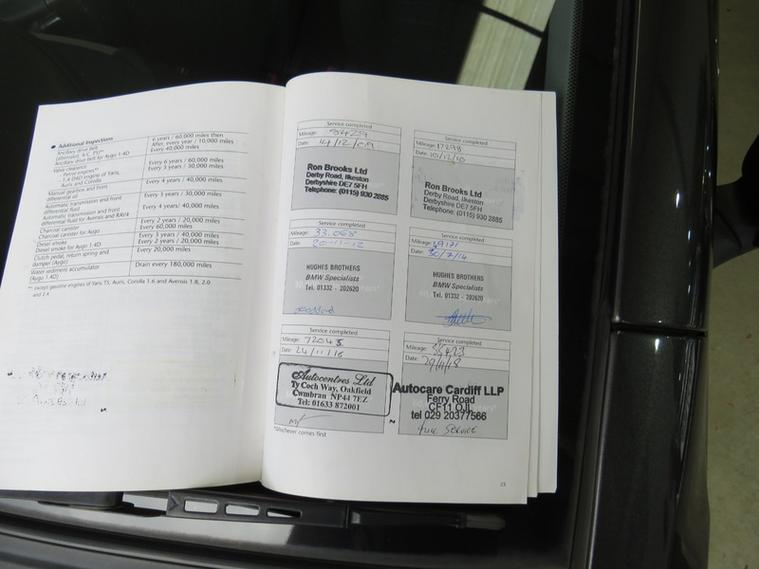 ● Additional Inspections
Ancillary drive belt
(alternator, A.C. PS)**
6 years / 60,000 miles then
After, every year / 10,000 miles
Ancillary drive belt for Aygo 1.4D
Every 40,000 miles
Valve clearances
Petrol engines**
Every 6 years / 60,000 miles
- 1.4 D4D engine of Yaris,
Auris and Corolla
Every 3 years / 30,000 miles
Manual gearbox and front
differential oil
Every 4 years / 40,000 miles
Automatic transmission and front
differential fluid
Every 3 years / 30,000 miles
Automatic transmission and front
differential fluid for Avensis and RAV4
Every 4 years / 40,000 miles
Charcoal canister
Every 2 years / 20,000 miles
Charcoal canister for Aygo
Every 60,000 miles
Diesel smoke
Every 3 years / 40,000 miles
Diesel smoke for Aygo 1.4D
Every 2 years / 20,000 miles
Clutch pedal, return spring and
damper (Aygo)
Every 20,000 miles
Water sediment accumulator
(Aygo 1.4D)
Drain every 180,000 miles
** except gasoline engines of Yaris TS, Auris, Corolla 1.6 and Avensis 1.8, 2.0
and 2.4
Service completed
Mileage:
Date: 14/12/09
Ron Brooks Ltd
Derby Road, Ilkeston
Derbyshire DE7 5FH
Telephone: (0115) 930 2885
Service completed
Mileage: 17298
Date: 10/12/10
Ron Brooks Ltd
Derby Road, Ilkeston
Derbyshire DE7 5FH
Telephone: (0115) 930 2885
Service completed
Mileage: 33,068
Date: 20-11-12
HUGHES BROTHERS
BMW Specialists
Tel. 01332 - 202620
Service completed
Mileage:
Date: 30/7/14
HUGHES BROTHERS
BMW Specialists
Tel. 01332 - 202620
Service completed
Mileage: 72045
Date: 24/11/16
Autocentres Ltd
Ty Coch Way, Oakfield
Cwmbran NP44 7EZ
Tel: 01633 872001
Service completed
Mileage:
Date:
Autocare Cardiff LLP
Ferry Road
CF11 OJL
tel 029 20377566
full Service
*Whichever comes first
23